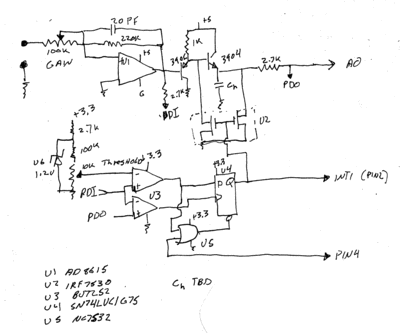 20 PF
+5
+5
220K
1K
3904
3904
2.7K
A0
100K
GAIN
U1
Ch
PDO
G
2.7K
PDI
U2
+3.3
2.7K
100K
U6
1.2V
10K
THRESHOLD
3.3
+3.3
U4
D Q
INT1 (PIN2)
PDI
U3
PDO
+3.3
U5
PIN4
U1 AD8615
U2 IRF7530
Ch TBD
U4 SN74LVC1G75
U5 NC7S32